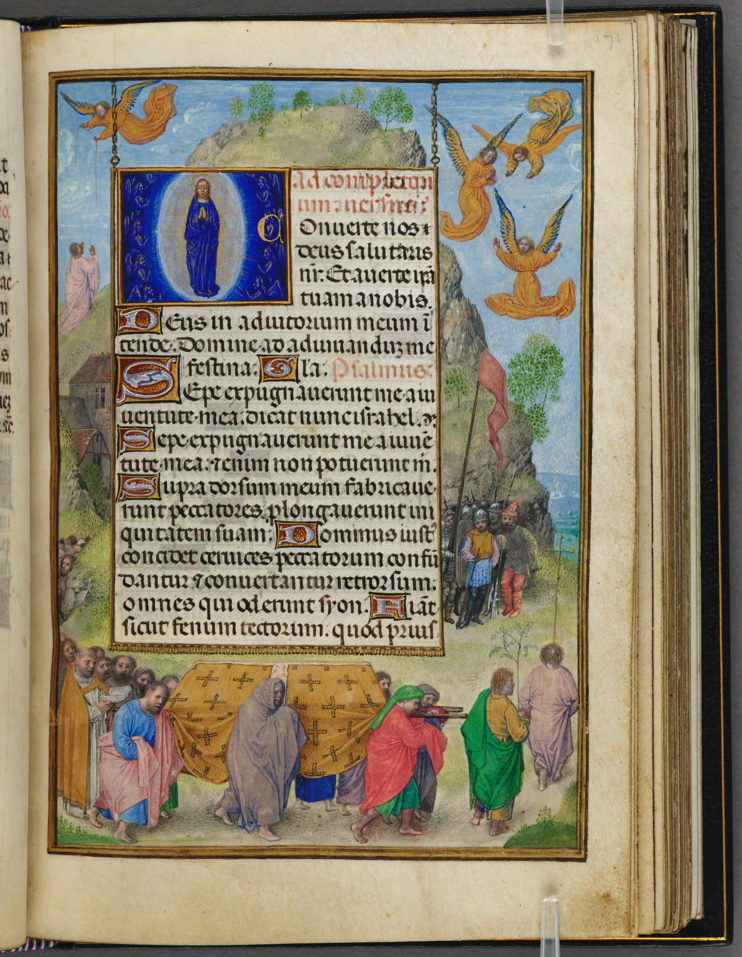 Ad completori
um. versus.
Onuerte nos
deus salutaris
nr̄. Et auerte irā
tuam a nobis.
Deus in adiutorium meum ī
tende. Domine ad adiuuandum me
festina. Gla. Psalmus.
Sepe expugnauerunt me a iu
uentute mea: dicat nunc israhel.
Sepe expugnauerunt me a iuuē
tute mea: etenim non potuerunt m̄.
Supra dorsum meum fabricaue
runt peccatores, plongauerunt ini
quitatem suam: Dominus iust
concidet ceruices peccatorum confū
dantur et conuertantur retrorsum:
omnes qui oderunt syon. Fiāt
sicut fenum tectorum: quod prius